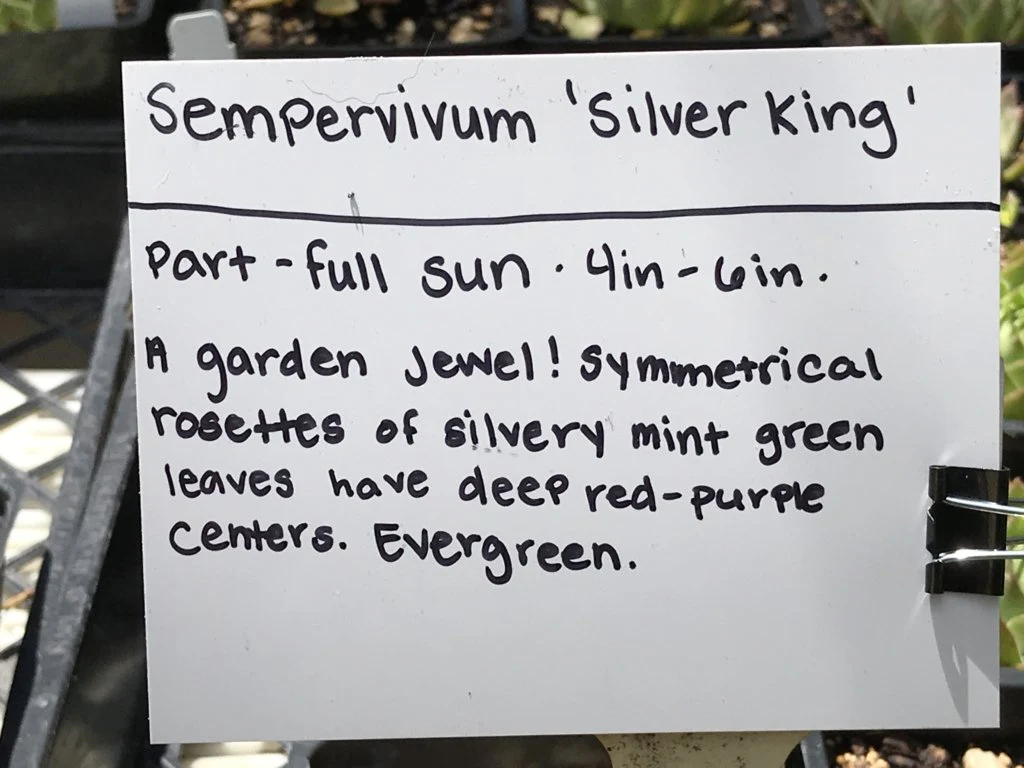 Sempervivum 'Silver King'
Part - full sun · 4in - 6in.
A garden jewel! Symmetrical
rosettes of silvery mint green
leaves have deep red-purple
centers. Evergreen.